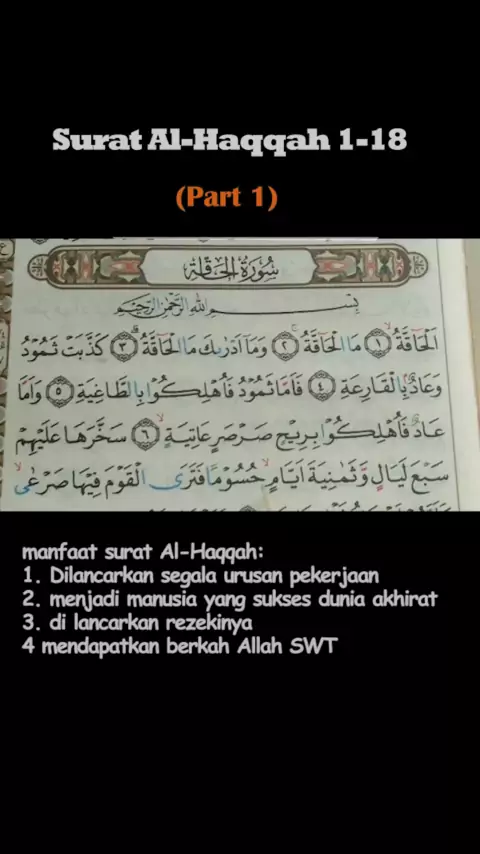 Surat Al-Haqqah 1-18
(Part 1)
سُورَةُ الْحَاقَّةِ
بِسْمِ اللهِ الرَّحْمٰنِ الرَّحِيْمِ
اَلْحَاۤقَّةُ ١ مَا الْحَاۤقَّةُ ٢ وَمَآ اَدْرٰىكَ مَا الْحَاۤقَّةُ ٣ كَذَّبَتْ ثَمُوْدُ
وَعَادٌۢ بِالْقَارِعَةِ ٤ فَاَمَّا ثَمُوْدُ فَاُهْلِكُوْا بِالطَّاغِيَةِ ٥ وَاَمَّا
عَادٌ فَاُهْلِكُوْا بِرِيْحٍ صَرْصَرٍ عَاتِيَةٍ ٦ سَخَّرَهَا عَلَيْهِمْ
سَبْعَ لَيَالٍ وَّثَمٰنِيَةَ اَيَّامٍ حُسُوْمًا فَتَرَى الْقَوْمَ فِيْهَا صَرْعٰى
manfaat surat Al-Haqqah:
1. Dilancarkan segala urusan pekerjaan
2. menjadi manusia yang sukses dunia akhirat
3. di lancarkan rezekinya
4 mendapatkan berkah Allah SWT